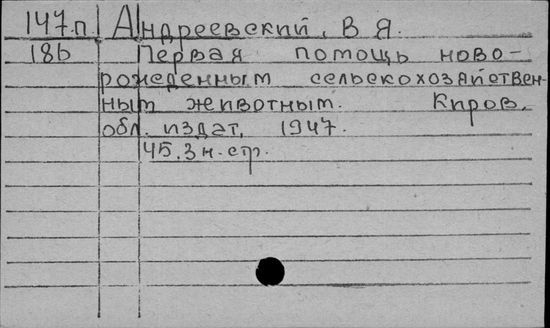 147.п. Андреевский, В Я.
18б Первая помощь ново-
рожеденным сельскохозяйствен-
ным животным. Киров.
обл. издат, 1947.
45.3 н. стр.